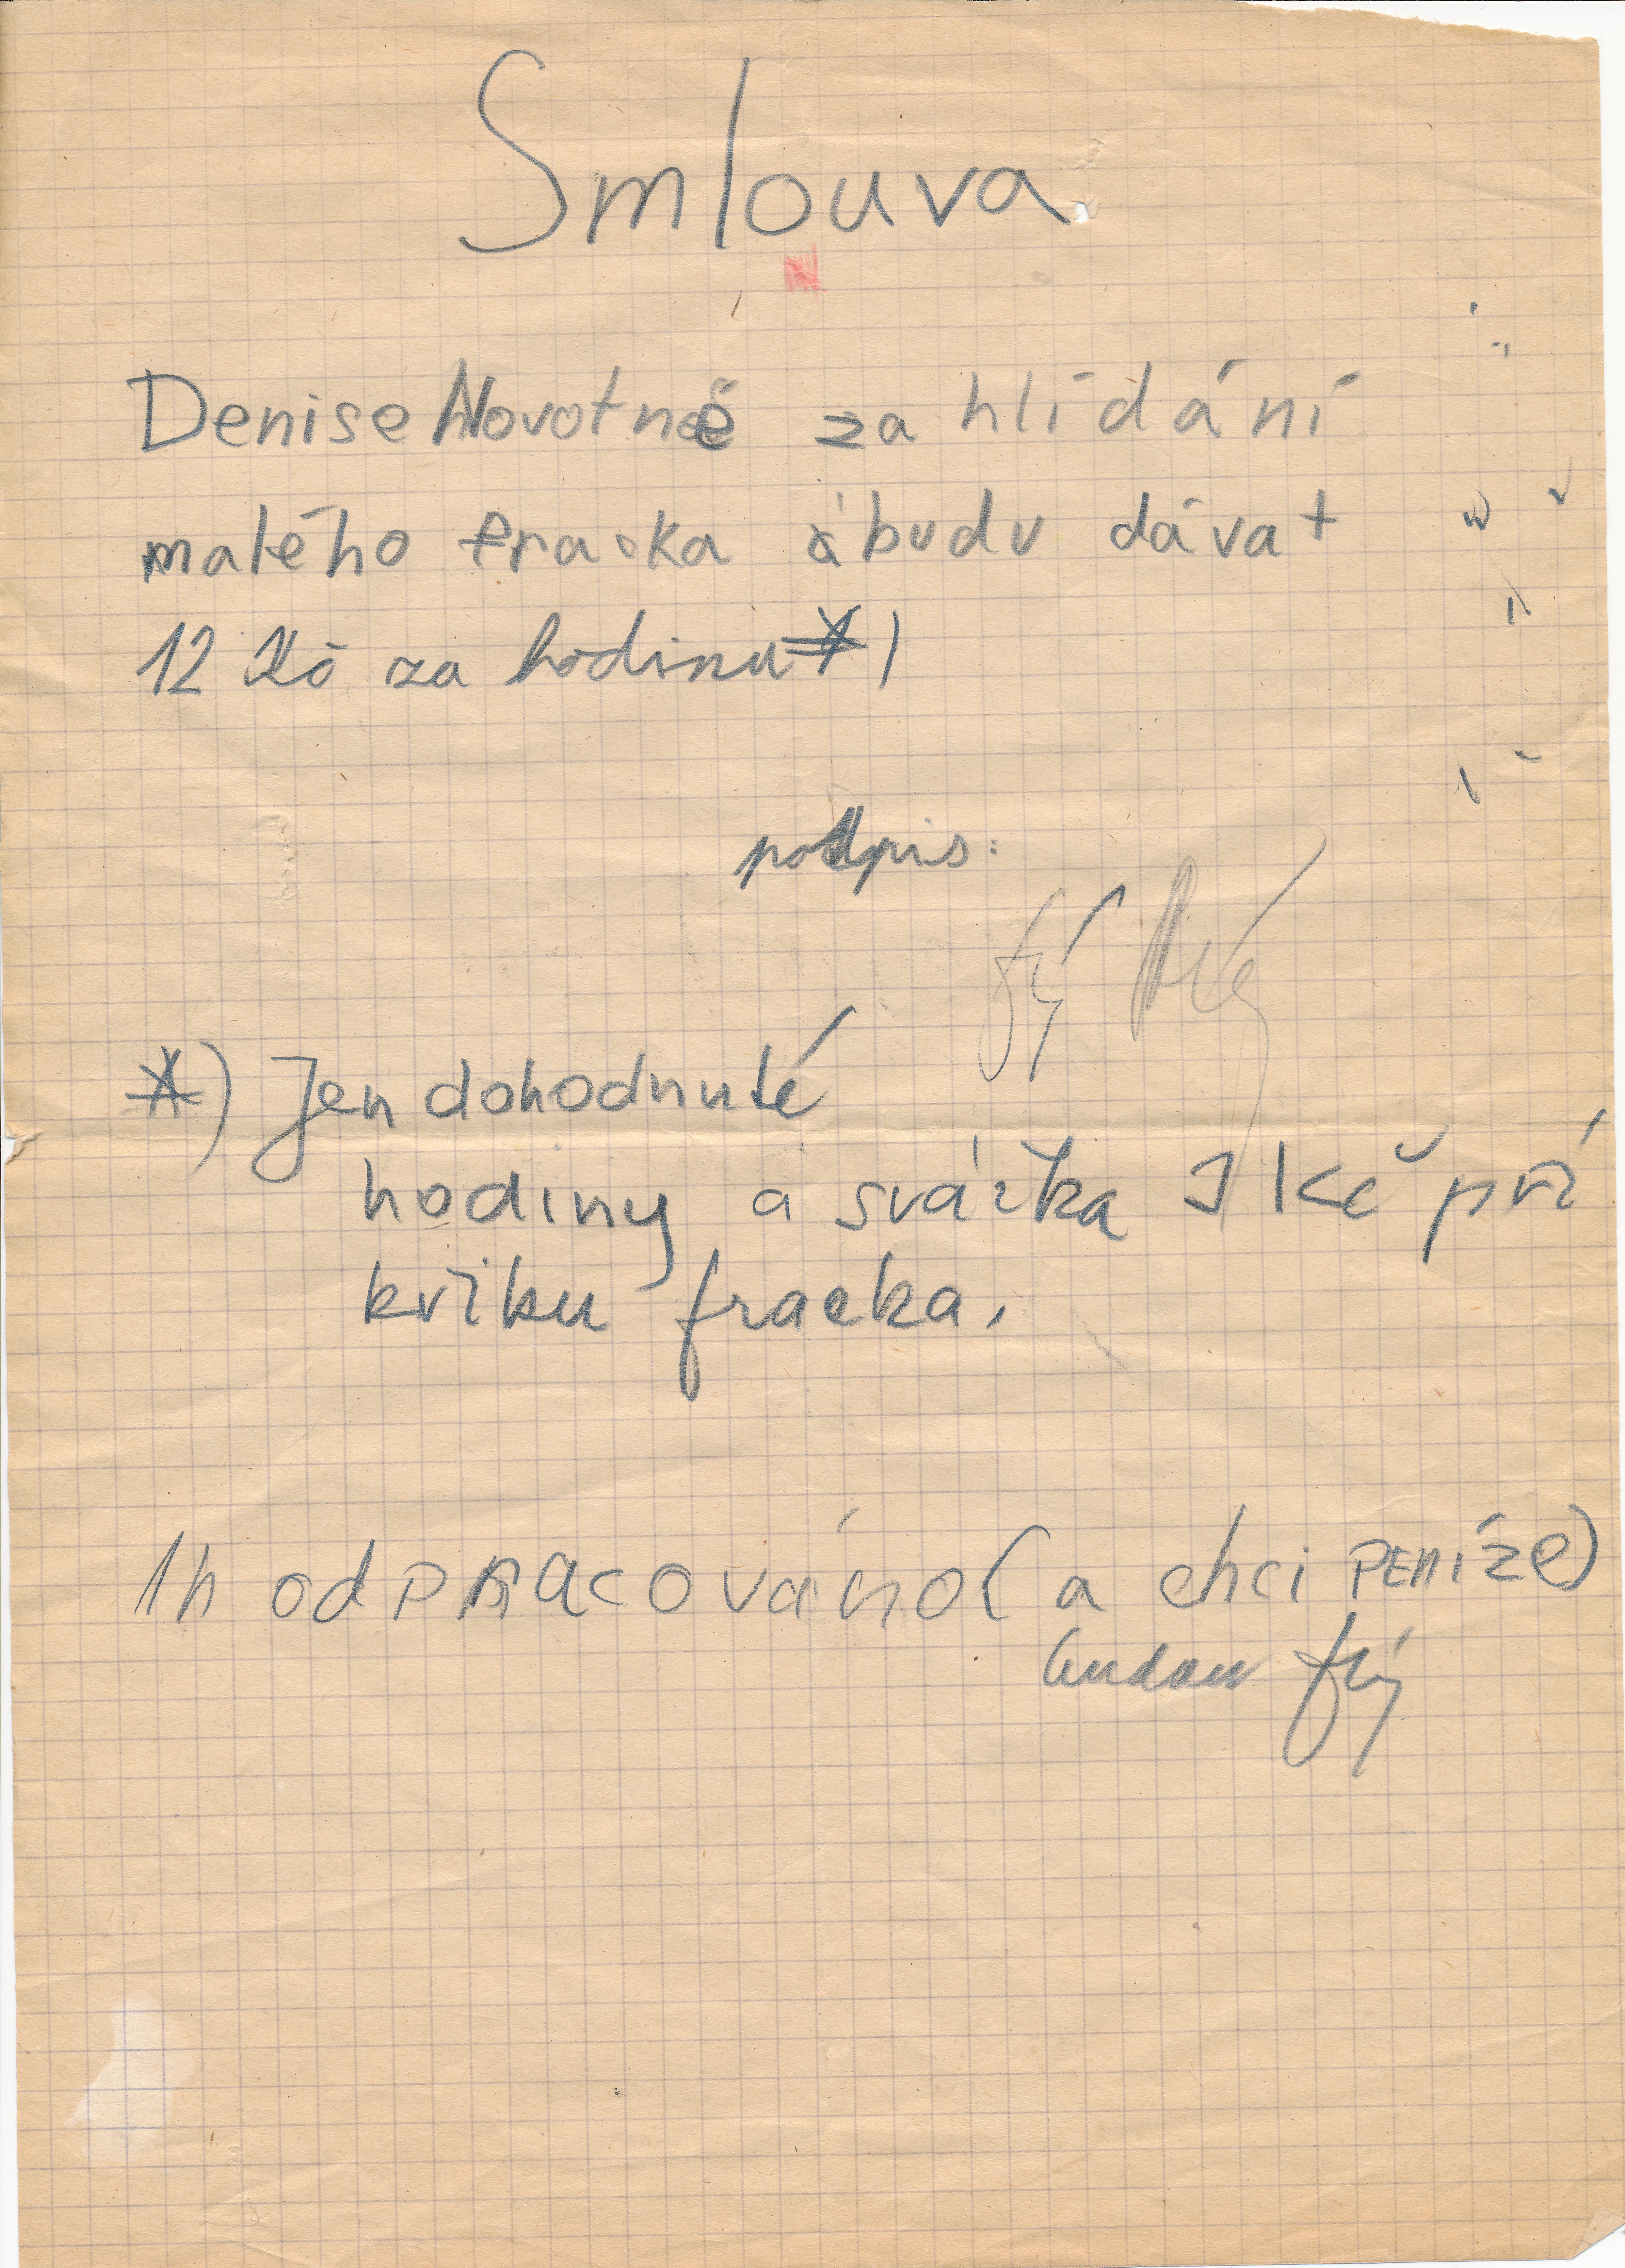 Smlouva
Denise Novotné za hlídání
malého fracka budu dávat
12 Kč za hodinu *)
podpis:
*) Jen dohodnuté
hodiny a svážka 1 Kč při
křiku fracka.
1h odpracováno (a chci peníze)